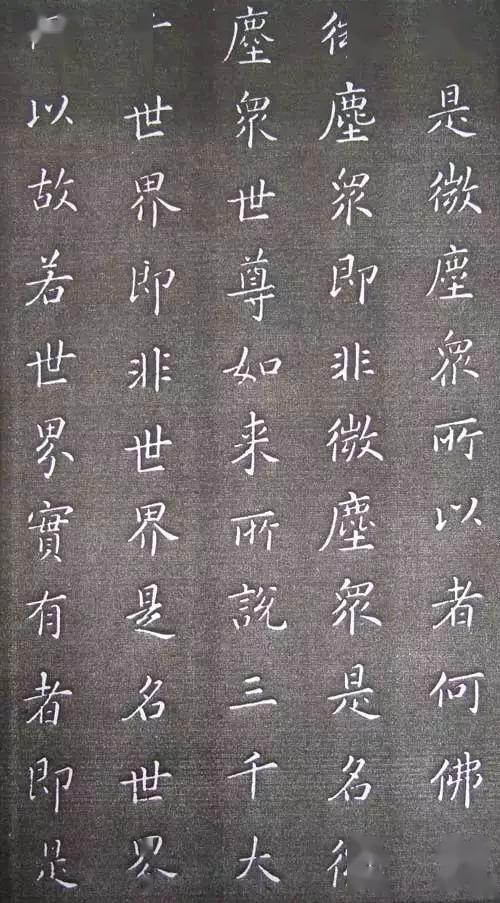 是微塵眾所以者何佛
塵眾即非微塵眾是名
塵眾世尊如来所說三千大
世界即非世界是名世界
以故若世界實有者即是